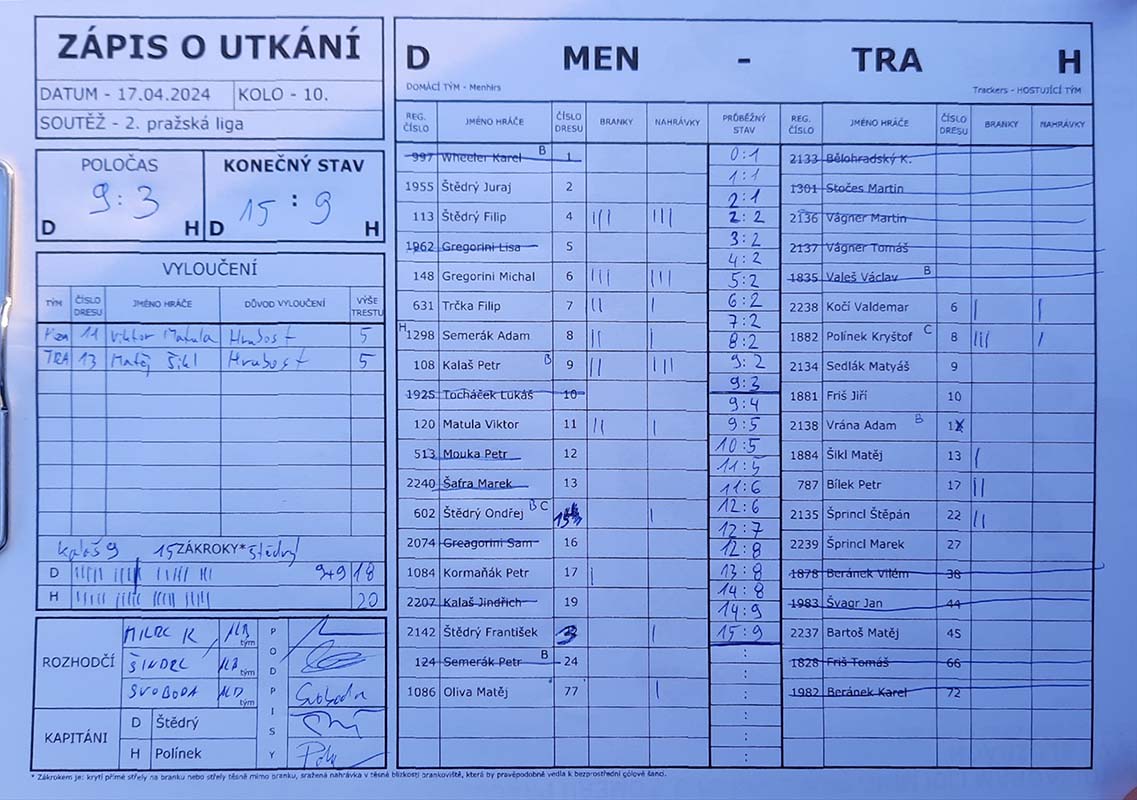 ZÁPIS O UTKÁNÍ
DATUM - 17.04.2024 KOLO - 10.
SOUTĚŽ - 2. pražská liga
POLOČAS KONEČNÝ STAV
9:3 15:9
D H D H
VYLOUČENÍ
TÝM ČÍSLO DRESU JMÉNO HRÁČE DŮVOD VYLOUČENÍ VÝŠE TRESTU
11 Viktor Matula Hrubost 5
TRA 13 Matěj Šikl Hrubost 5
Kalaš 9 15 ZÁKROKY* Štědrý
D 9+9 18
H 20
ROZHODČÍ
MILEC K tým
ŠINDEL tým
SVOBODA tým
PODPISY
Svoboda
KAPITÁNI
D Štědrý
H Polínek
D MEN - TRA H
DOMÁCÍ TÝM - Menhirs Trackers - HOSTUJÍCÍ TÝM
REG. ČÍSLO JMÉNO HRÁČE ČÍSLO DRESU BRANKY NAHRÁVKY PRŮBĚŽNÝ STAV REG. ČÍSLO JMÉNO HRÁČE ČÍSLO DRESU BRANKY NAHRÁVKY
997 Wheeler Karel B 1
1955 Štědrý Juraj 2
113 Štědrý Filip 4 ||| |||
1962 Gregorini Lisa 5
148 Gregorini Michal 6 ||| |||
631 Trčka Filip 7 || |
H 1298 Semerák Adam 8 || |
108 Kalaš Petr B 9 || |||
1925 Tocháček Lukáš 10
120 Matula Viktor 11 || |
513 Mouka Petr 12
2240 Šafra Marek 13
602 Štědrý Ondřej B C |
2074 Greagorini Sam 16
1084 Kormaňák Petr 17 |
2207 Kalaš Jindřich 19
2142 Štědrý František |
124 Semerák Petr B 24
1086 Oliva Matěj 77 |
0:1
1:1
2:1
2:2
3:2
4:2
5:2
6:2
7:2
8:2
9:2
9:3
9:4
9:5
10:5
11:5
11:6
12:6
12:7
12:8
13:8
14:8
14:9
15:9
2133 Bělohradský K.
1301 Stočes Martin
2136 Vágner Martin
2137 Vágner Tomáš
1835 Valeš Václav B
2238 Kočí Valdemar 6 | |
1882 Polínek Kryštof C 8 ||| |
2134 Sedlák Matyáš 9
1881 Friš Jiří 10
2138 Vrána Adam B 1
1884 Šikl Matěj 13 |
787 Bílek Petr 17 ||
2135 Šprincl Štěpán 22 ||
2239 Šprincl Marek 27
1878 Beránek Vilém 38
1983 Švagr Jan 44
2237 Bartoš Matěj 45
1828 Friš Tomáš 66
1982 Beránek Karel 72
* Zákrokem je: krytí přímé střely na branku nebo střely těsně mimo branku, sražená nahrávka v těsné blízkosti brankoviště, která by pravěpodobně vedla k bezprostřední gólové šanci.